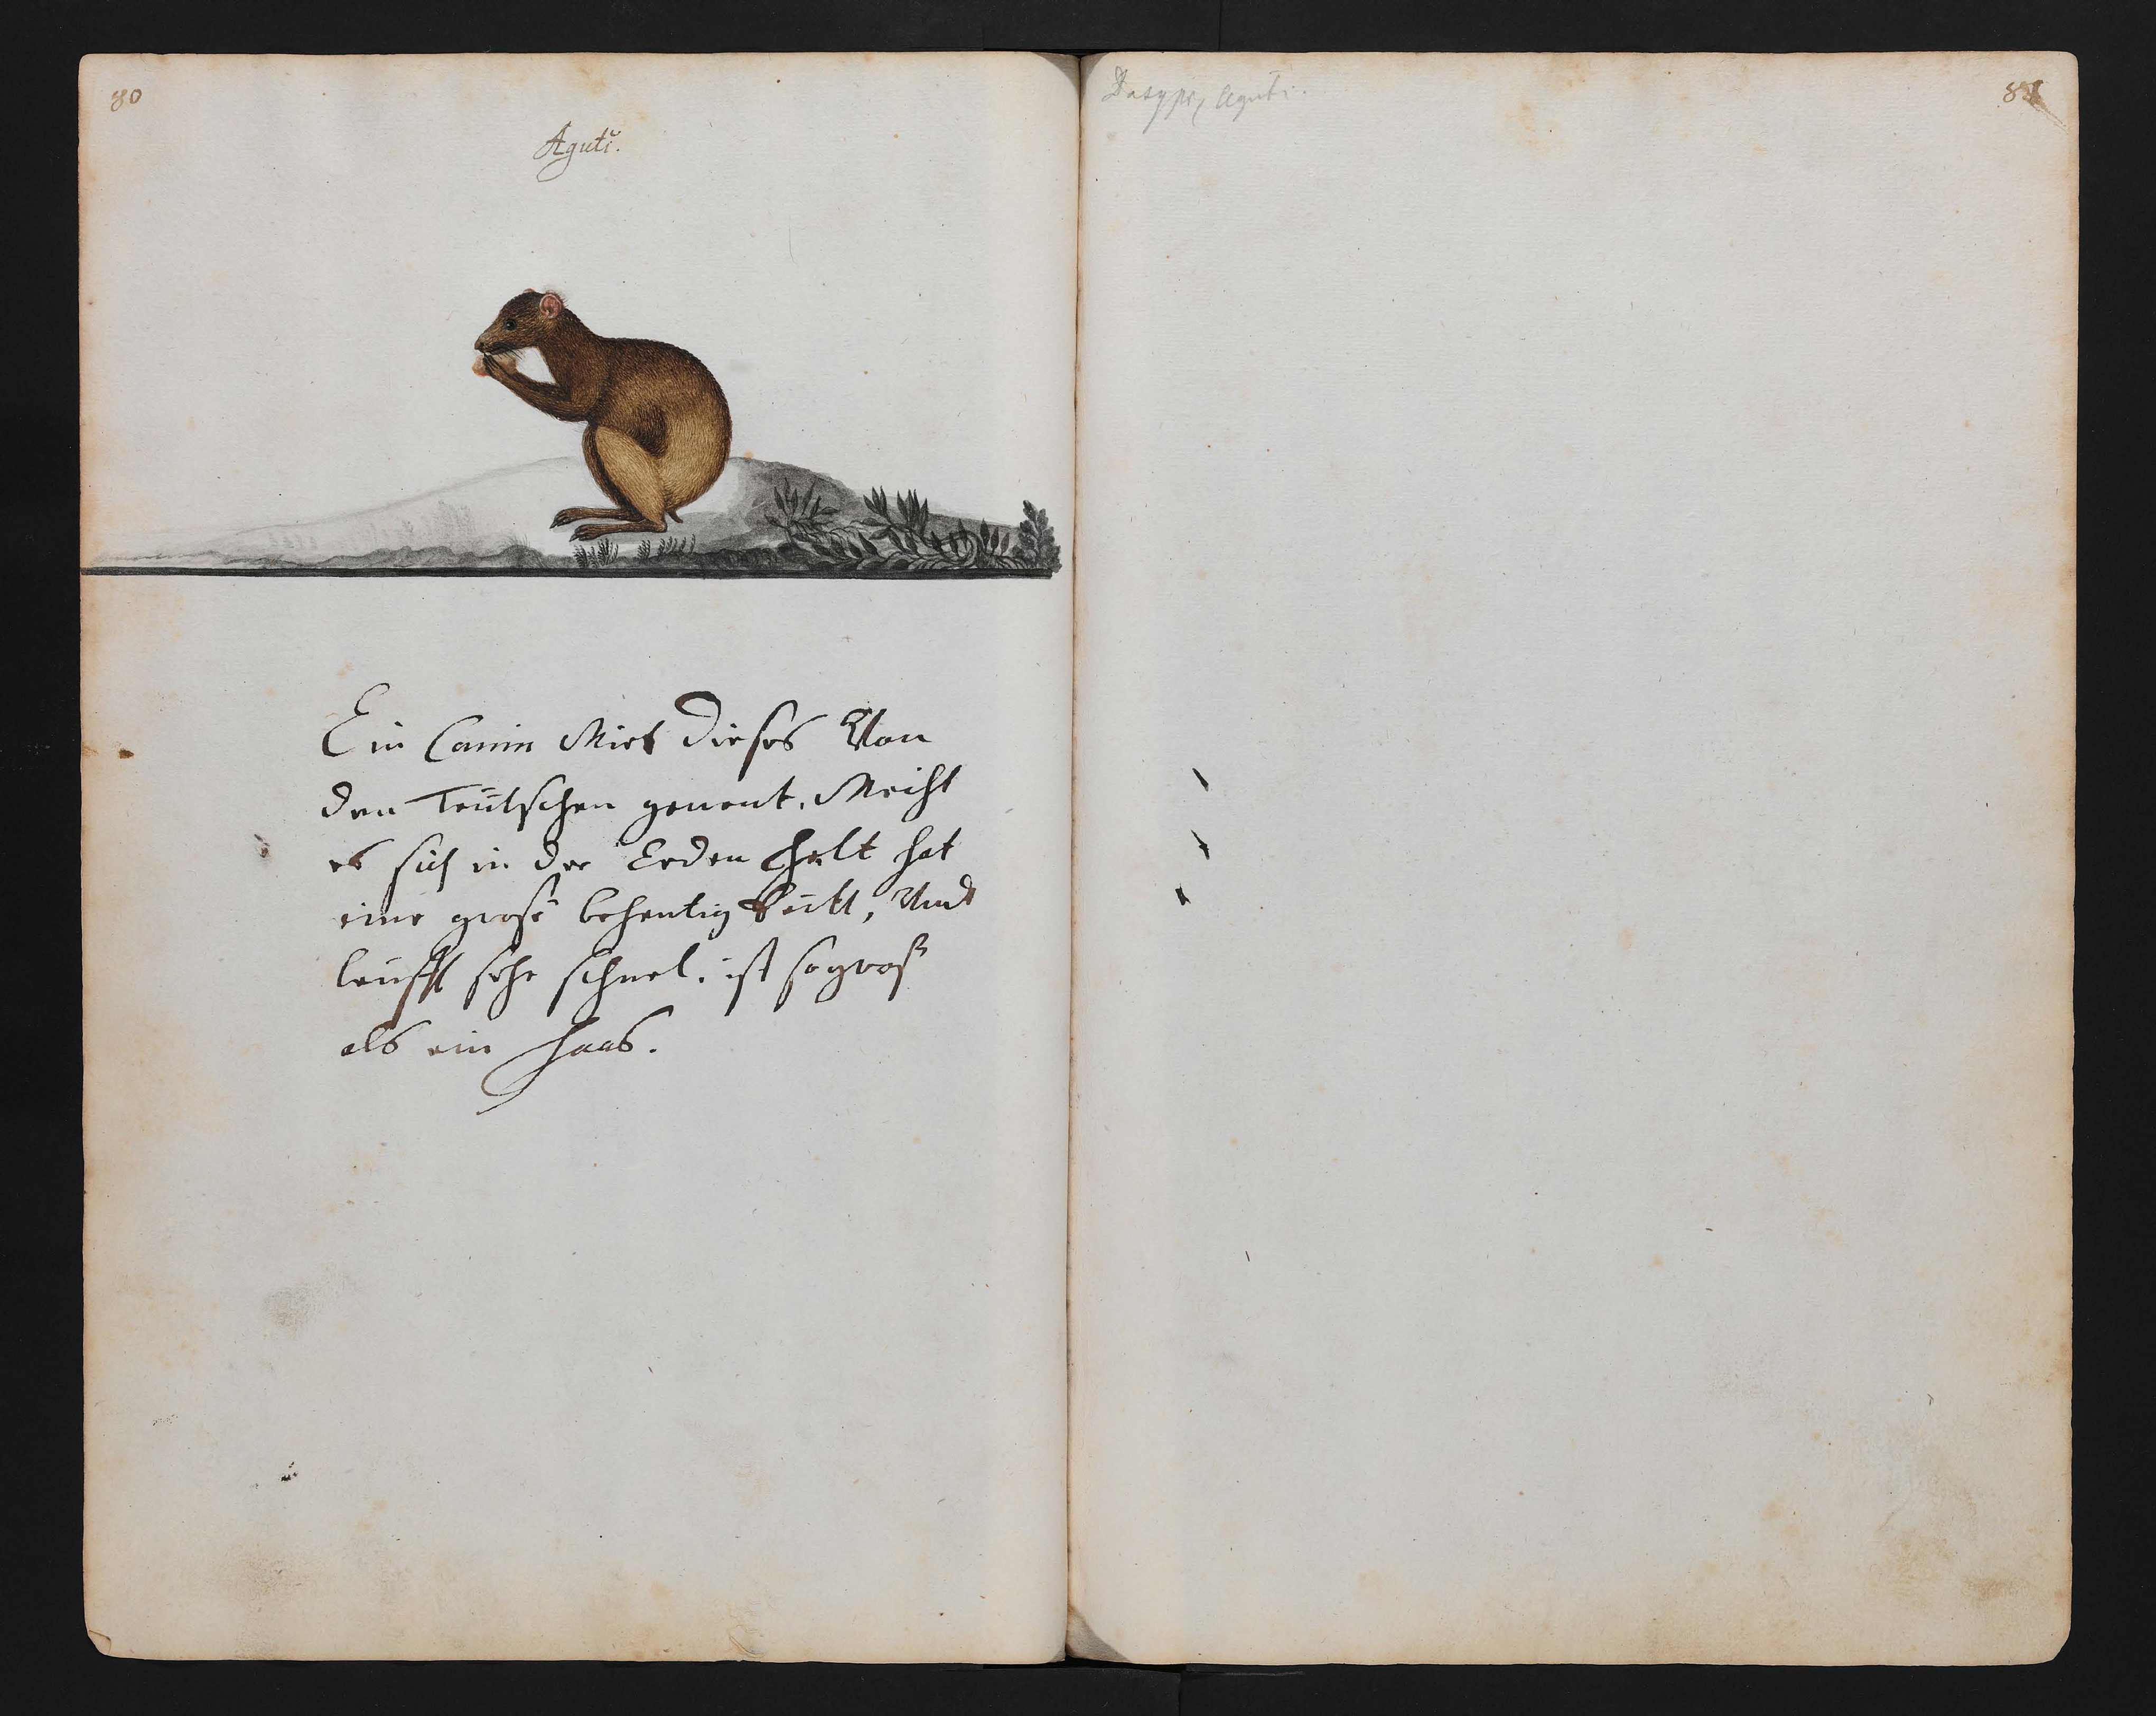 80
Aguti.
Ein Canin Wirt dieses Von
den Teutschen genent. Weihl
es sich in der Erden helt hat
eine große behentig Keitt, Und
leufft sehr schnel. ist so groß
als ein Haas.
Aguti.